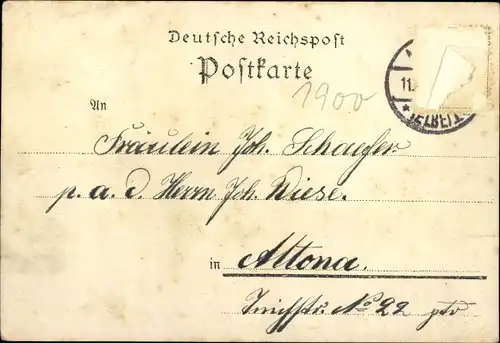 Deutsche Reichspost
Postkarte
1900
11.
An
Fräulein Joh. Schaefer.
p. a. d. Herrn Joh. Wiese.
in Altona.
No 22 ptr